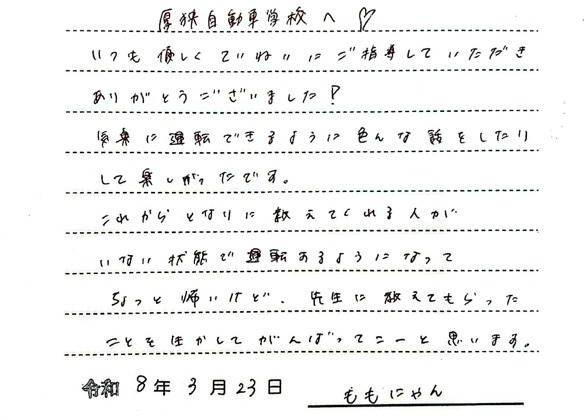 厚狭自動車学校へ♡
いつも優しくていねいにご指導していただき
ありがとうございました!
気楽に運転できるように色んな話をしたり
して楽しかったです。
これからとなりに教えてくれる人が
いない状態で運転するようになって
ちょっと怖いけど、先生に教えてもらった
ことを生かしてがんばってこーと思います。
令和 8年 3月23日 ももにゃん